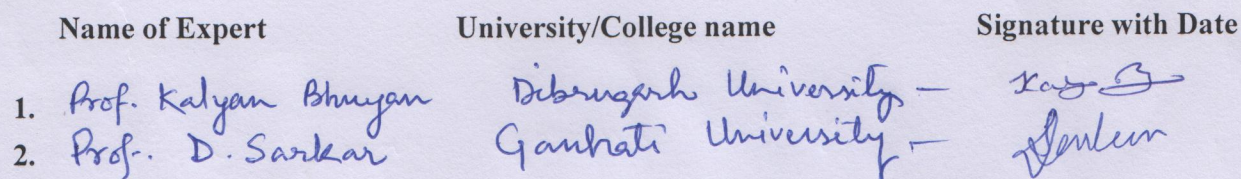 Name of Expert University/College name Signature with Date
1. Prof. Kalyan Bhuyan Dibrugarh University –
2. Prof. D. Sarkar Gauhati University –